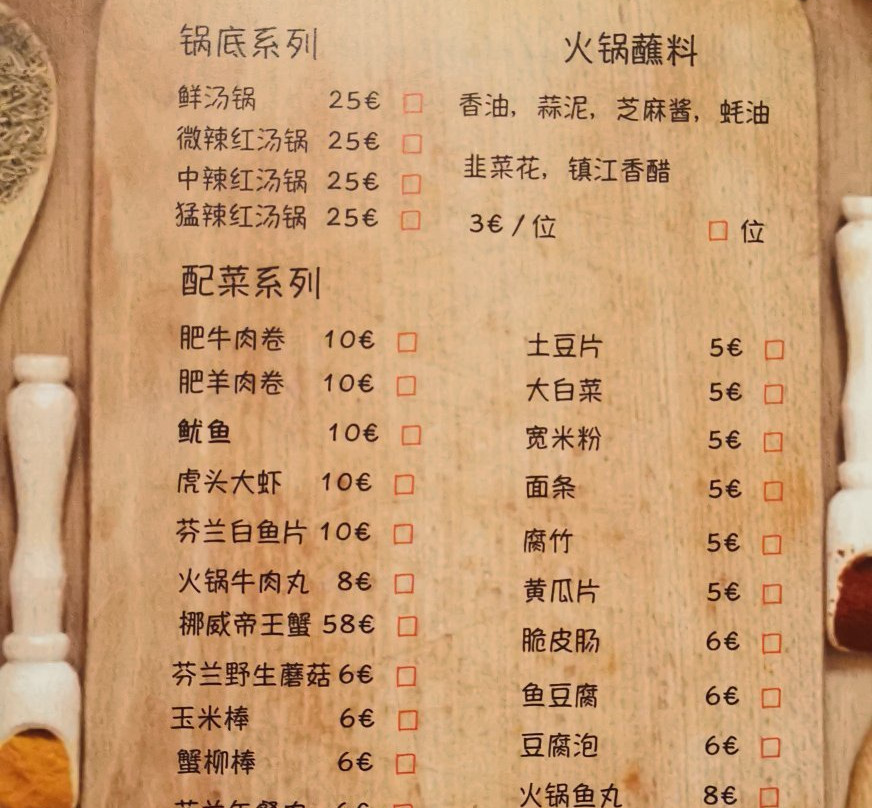 锅底系列
鲜汤锅 25€
微辣红汤锅 25€
中辣红汤锅 25€
猛辣红汤锅 25€
火锅蘸料
香油，蒜泥，芝麻酱，蚝油
韭菜花，镇江香醋
3€/位 位
配菜系列
肥牛肉卷 10€
肥羊肉卷 10€
鱿鱼 10€
虎头大虾 10€
芬兰白鱼片 10€
火锅牛肉丸 8€
挪威帝王蟹 58€
芬兰野生蘑菇 6€
玉米棒 6€
蟹柳棒 6€
6€
土豆片 5€
大白菜 5€
宽米粉 5€
面条 5€
腐竹 5€
黄瓜片 5€
脆皮肠 6€
鱼豆腐 6€
豆腐泡 6€
火锅鱼丸 8€